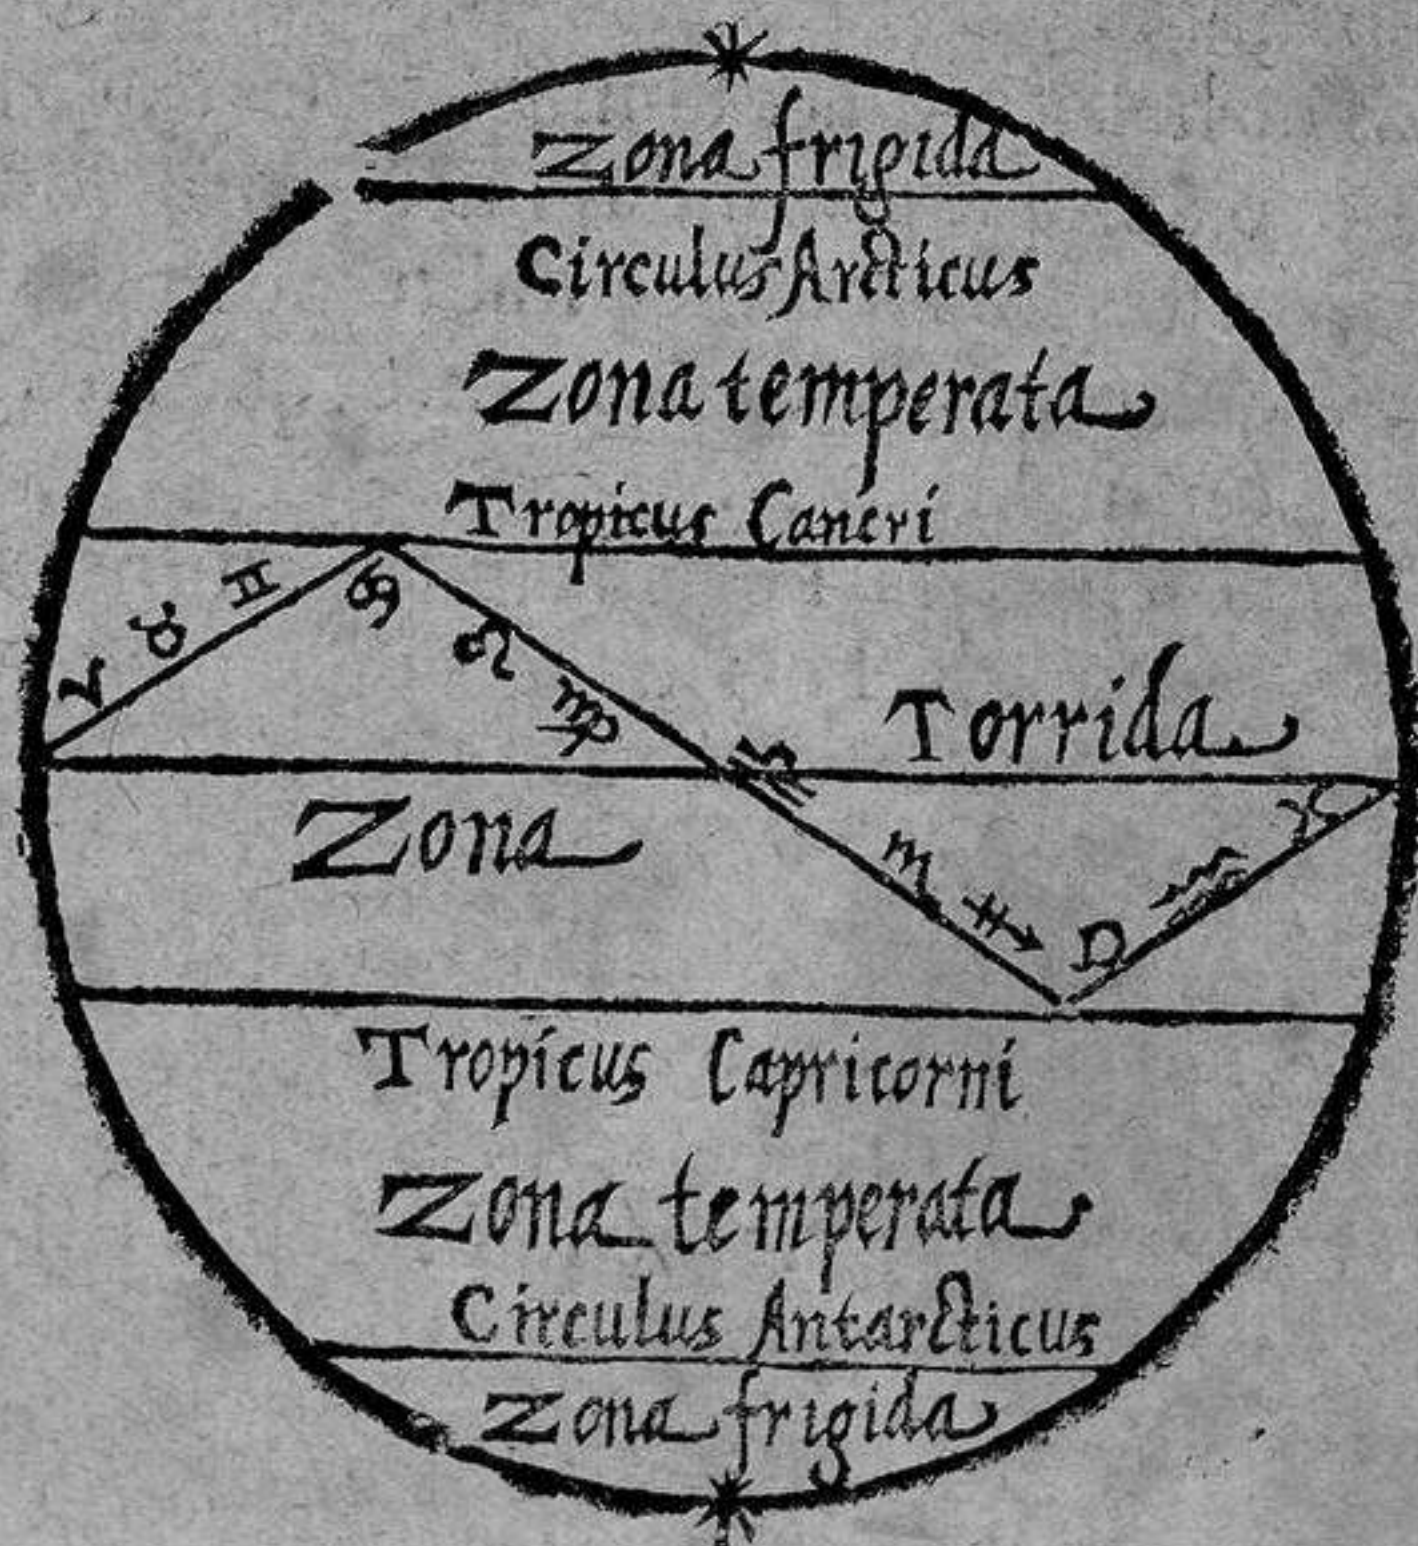 Zona frigida
Circulus Arcticus
Zona temperata
Tropicus Cancri
♈ ♉ ♊ ♋ ♌ ♍ ♎ ♏ ♐ ♑ ♒ ♓
Torrida
Zona
Tropicus Capricorni
Zona temperata
Circulus Antarcticus
Zona frigida